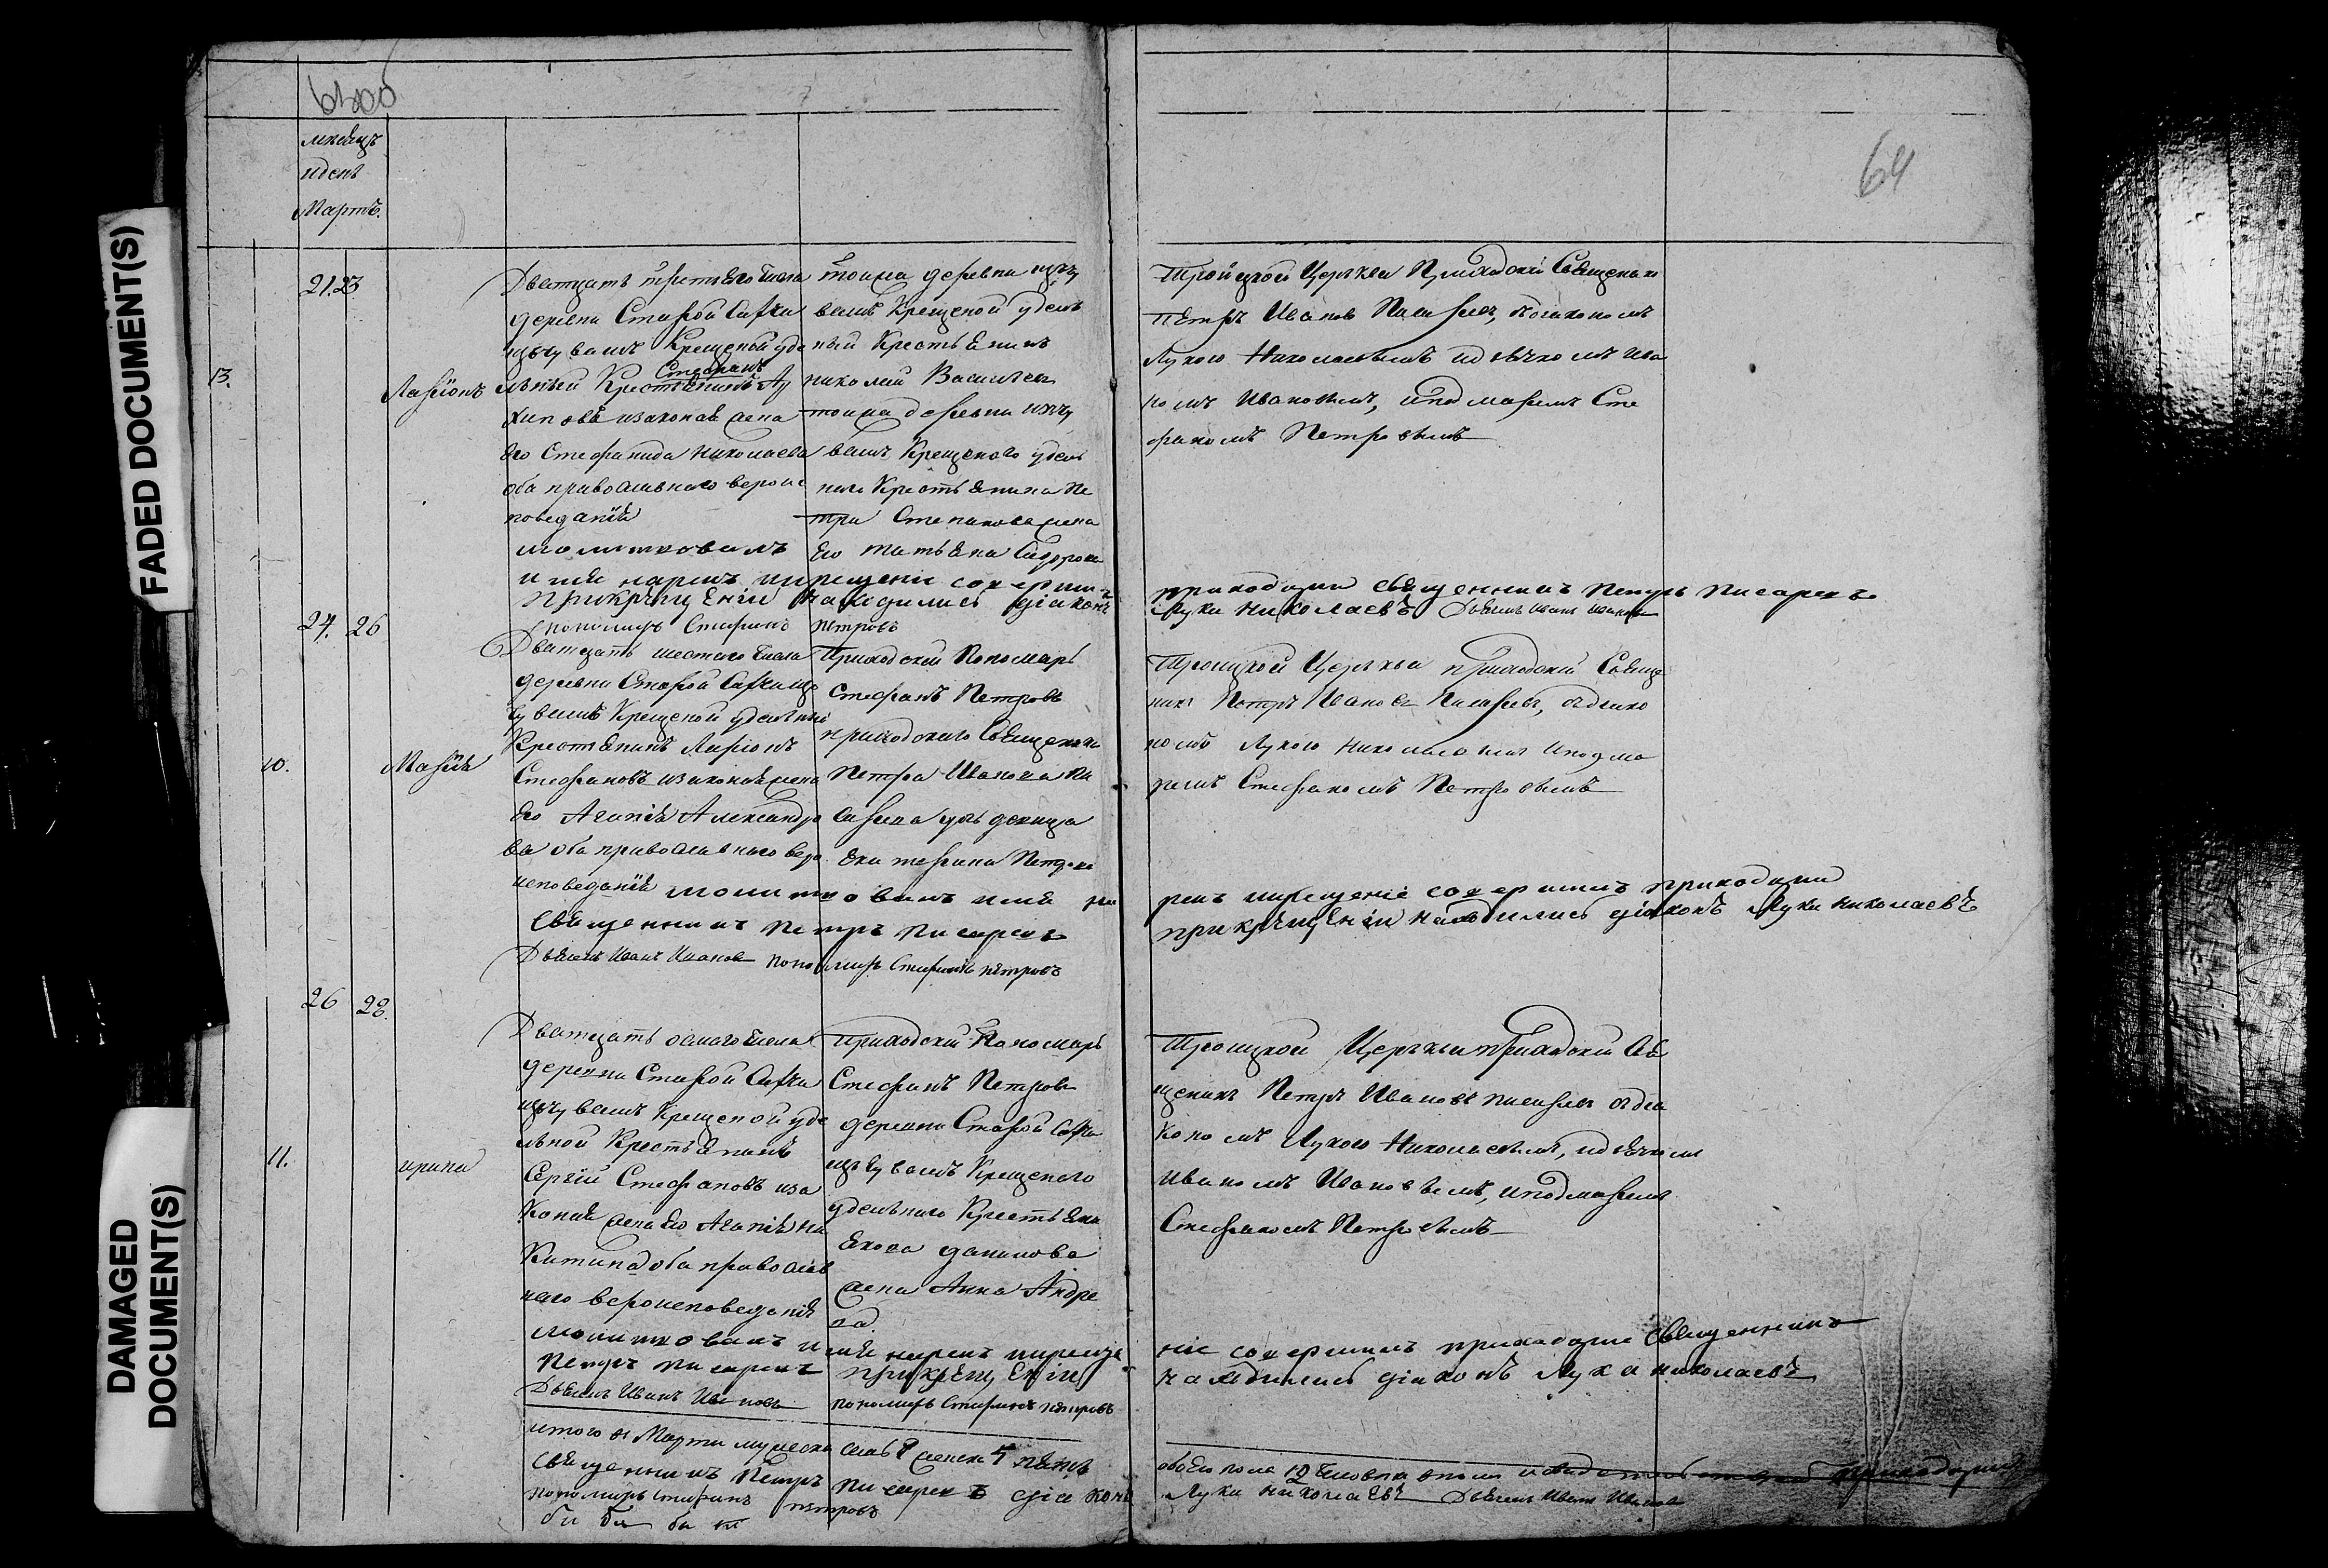 FADED DOCUMENT(S)
DAMAGED
DOCUMENT(S)
64
месяцъ
и день
Мартъ.
13.
21. 23.
Лариîонъ
Дватцать третьяго числа
деревни Старой
Крещеной уде
льный Крестьянинъ
Стефанъ
Ар
хиповъ изаконная жена
его Стефанида Николаева
оба православнаго вероис
поведанiя
тояжа деревни изъ чу
вашъ Крещеной удель
ный Крестьянинъ
николай Васильевъ
тояжа деревни изъ чу
вашъ Крещенаго удель
наго Крестьянина Пе
тра Степанова жена
его татьяна Сидорова
Тройцкой Церкви Приходский Священник
Петръ Иванов Писаревъ, здiякономъ
Лукою Николаевымъ идьячкомъ Ива
номъ Ивановымъ, ипономаремъ Сте
фаномъ Петровымъ
молитвовалъ
имя нарекъ икрещенiе совершилъ
приходский священникъ Петръ Писаревъ
прикрещенiи находились дiяконъ
Лука Николаевъ Дьячекъ Иванъ Иванов
пономарь Стефанъ петровъ
10.
24. 26
Марiя
Дватцать шестаго числа
деревни Старой
чувашъ Крещеной удельный
Крестьянинъ Ларiонъ
Стефановъ изаконная жена
его Агапiя Александро
ва оба православнаго веро
исповеданiя
Приходский Пономарь
Стефанъ Петровъ
приходскаго Священника
Петра Иванова Пи
сарева дочь девица
Екатерина Петрова
Троицкой Церкви приходский Свяще
никъ Петръ Ивановъ Писаревъ, сдiяко
номъ Лукою Николаевымъ ипонома
ремъ Стефаномъ Петровымъ
молитвовалъ имя на
рекъ икрещенiе совершилъ приходский
священникъ Петръ Писаревъ
прикрещенiи находились дiяконъ Лука николаевъ
Дьячекъ Иванъ Иванов пономарь Стефанъ петровъ
11.
26 28.
ирина
Дватцать осмаго числа
деревни Старой
изъ чувашъ Крещеной уде
льной Крестьянинъ
Сергiй Стефановъ иза
конная жена его Агапiя Ни
китина оба православ
наго вероисповеданiя
приходский Пономарь
Стефанъ Петровъ
деревни Старой
изъ чувашъ Крещенаго
удельнаго Крестьяни
Якова данилова
жена Анна Андре
ва
Троицкой Церкви приходский Свя
щеникъ Петръ Ивановъ писаревъ сдiя
кономъ Лукою Николаевымъ, идьячком
Иваномъ Ивановымъ, ипономаремъ
Стефаномъ Петровымъ
молитвовалъ имя нарекъ икреще
нiе совершилъ приходские Священникъ
Петръ Писаревъ прикрещенiи
находились дiяконъ Лука николаевъ
Дьячекъ Иванъ Иванов пономарь Стефанъ петровъ
итого в Марте мужеска
женска
обоего пола 12 человека
Священникъ Петръ Писаревъ дiяконъ
Лука николаевъ Дьячекъ Иванъ Иванов
пономарь Стефанъ петровъ